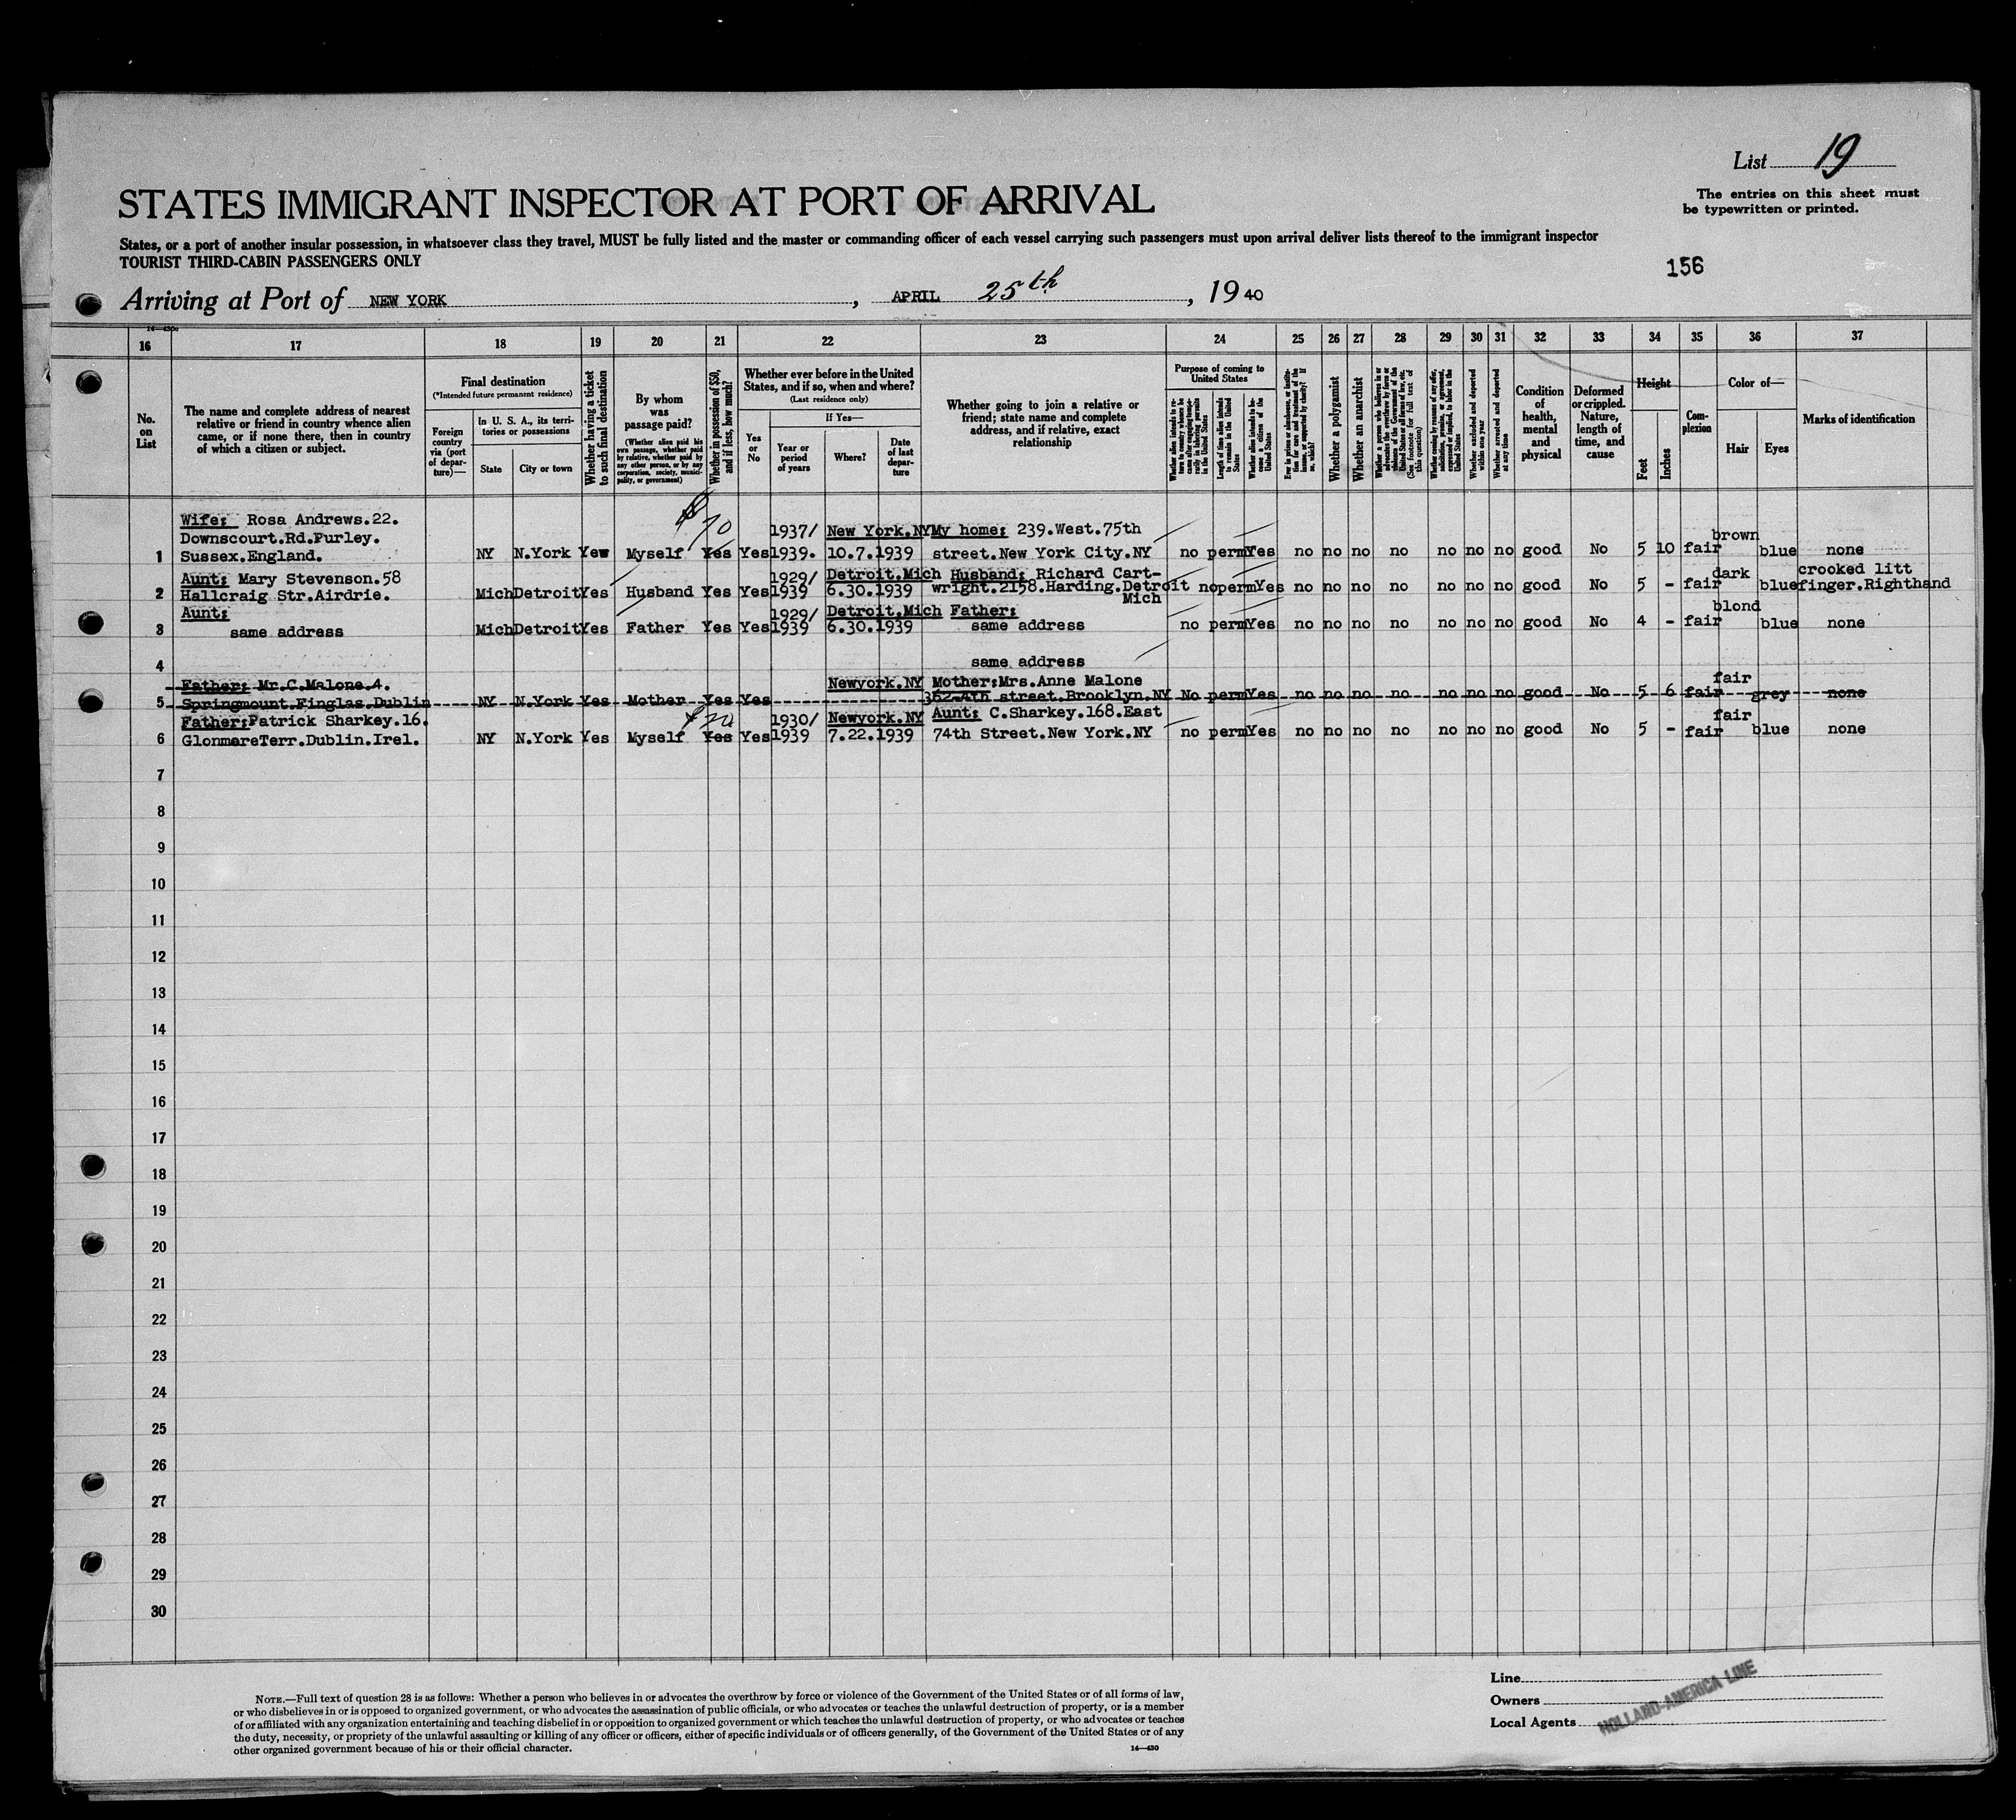 List 19
STATES IMMIGRANT INSPECTOR AT PORT OF ARRIVAL
The entries on this sheet must
be typewritten or printed.
States, or a port of another insular possession, in whatsoever class they travel, MUST be fully listed and the master or commanding officer of each vessel carrying such passengers must upon arrival deliver lists thereof to the immigrant inspector
TOURIST THIRD-CABIN PASSENGERS ONLY
156
Arriving at Port of NEW YORK, APRIL 25th, 1940
16 17 18 19 20 21 22 23 24 25 26 27 28 29 30 31 32 33 34 35 36 37
No. on List
The name and complete address of nearest
relative or friend in country whence alien
came, or if none there, then in country
of which a citizen or subject.
Final destination
(*Intended future permanent residence)
Foreign country via (port of departure)—
In U. S. A., its territories or possessions
State
City or town
Whether having a ticket to such final destination
By whom was passage paid?
(Whether alien paid his own passage, whether paid by relative, whether paid by any other person, or by any corporation, society, municipality, or government)
Whether in possession of $50, and if less, how much?
Whether ever before in the United
States, and if so, when and where?
(Last residence only)
Yes or No
If Yes—
Year or period of years
Where?
Date of last departure
Whether going to join a relative or
friend; state name and complete
address, and if relative, exact
relationship
Purpose of coming to
United States
Length of time alien intends to remain in the United States
Whether alien intends to become a citizen of the United States
Whether a polygamist
Whether an anarchist
(See footnote for full text of this question)
Whether excluded and deported within one year
Whether arrested and deported at any time
Condition of health, mental and physical
Deformed or crippled. Nature, length of time, and cause
Height
Feet
Inches
Complexion
Color of—
Hair
Eyes
Marks of identification
Wife: Rosa Andrews.22. $ 70 1937/ New York.NY My home: 239.West.75th brown
Downscourt.Rd.Purley.
1 Sussex.England. NY N.York Yew Myself Yes Yes 1939. 10.7.1939 street.New York City.NY no perm Yes no no no no no no no good No 5 10 fair blue none
Aunt: Mary Stevenson.58 1929/ Detroit.Mich Husband: Richard Cart- dark crooked litt
2 Hallcraig Str.Airdrie. Mich Detroit Yes Husband Yes Yes 1939 6.30.1939 wright.2158.Harding.Detroit no perm Yes no no no no no no no good No 5 - fair blue finger.Righthand
Mich
Aunt: 1929/ Detroit.Mich Father: blond
3 same address Mich Detroit Yes Father Yes Yes 1939 6.30.1939 same address no perm Yes no no no no no no no good No 4 - fair blue none
4 same address
Father: Mr.C.Malone.4. Newyork.NY Mother:Mrs.Anne Malone fair
5 Springmount.Finglas.Dublin NY N.York Yes Mother Yes Yes 362-4th street.Brooklyn.NY No perm Yes no no no no no no no good No 5 6 fair grey none
Father:Patrick Sharkey.16. $ 70 1930/ Newyork.NY Aunt: C.Sharkey.168.East fair
6 GlonmareTerr.Dublin.Irel. NY N.York Yes Myself Yes Yes 1939 7.22.1939 74th Street.New York.NY no perm Yes no no no no no no no good No 5 - fair blue none
7
8
9
10
11
12
13
14
15
16
17
18
19
20
21
22
23
24
25
26
27
28
29
30
NOTE.—Full text of question 28 is as follows: Whether a person who believes in or advocates the overthrow by force or violence of the Government of the United States or of all forms of law,
or who disbelieves in or is opposed to organized government, or who advocates the assassination of public officials, or who advocates or teaches the unlawful destruction of property, or is a member
of or affiliated with any organization entertaining and teaching disbelief in or opposition to organized government or which teaches the unlawful destruction of property, or who advocates or teaches
the duty, necessity, or propriety of the unlawful assaulting or killing of any officer or officers, either of specific individuals or of officers generally, of the Government of the United States or of any
other organized government because of his or their official character.
14—430
Line
Owners
Local Agents
HOLLAND-AMERICA LINE